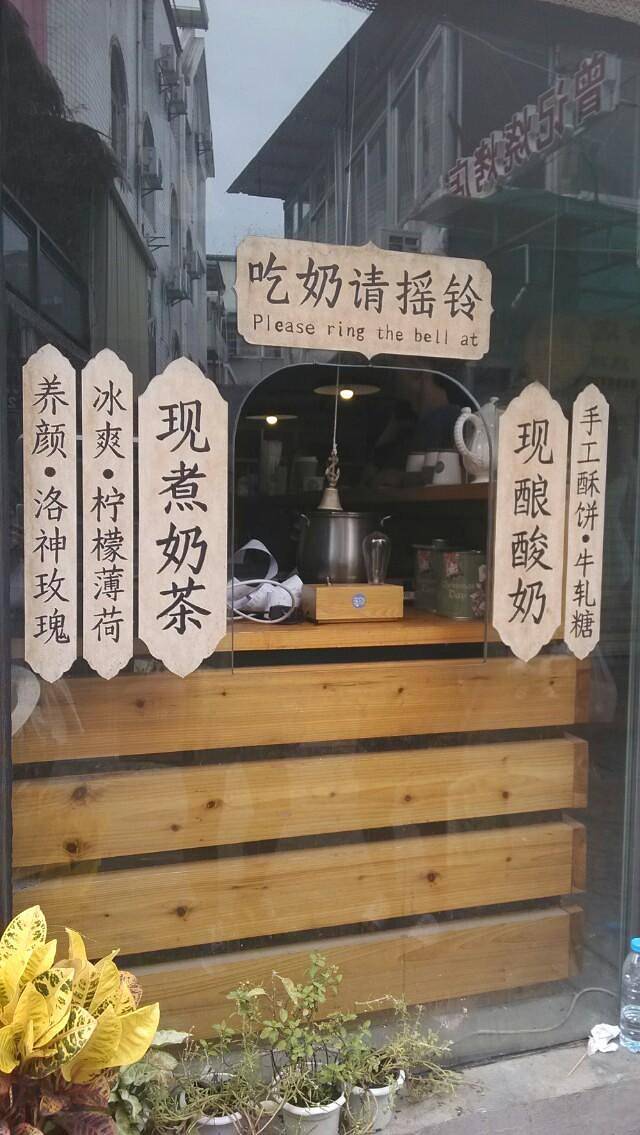 吃奶请摇铃
Please ring the bell at
养颜•洛神玫瑰
冰爽•柠檬薄荷
现煮奶茶
现酿酸奶
手工酥饼•牛轧糖